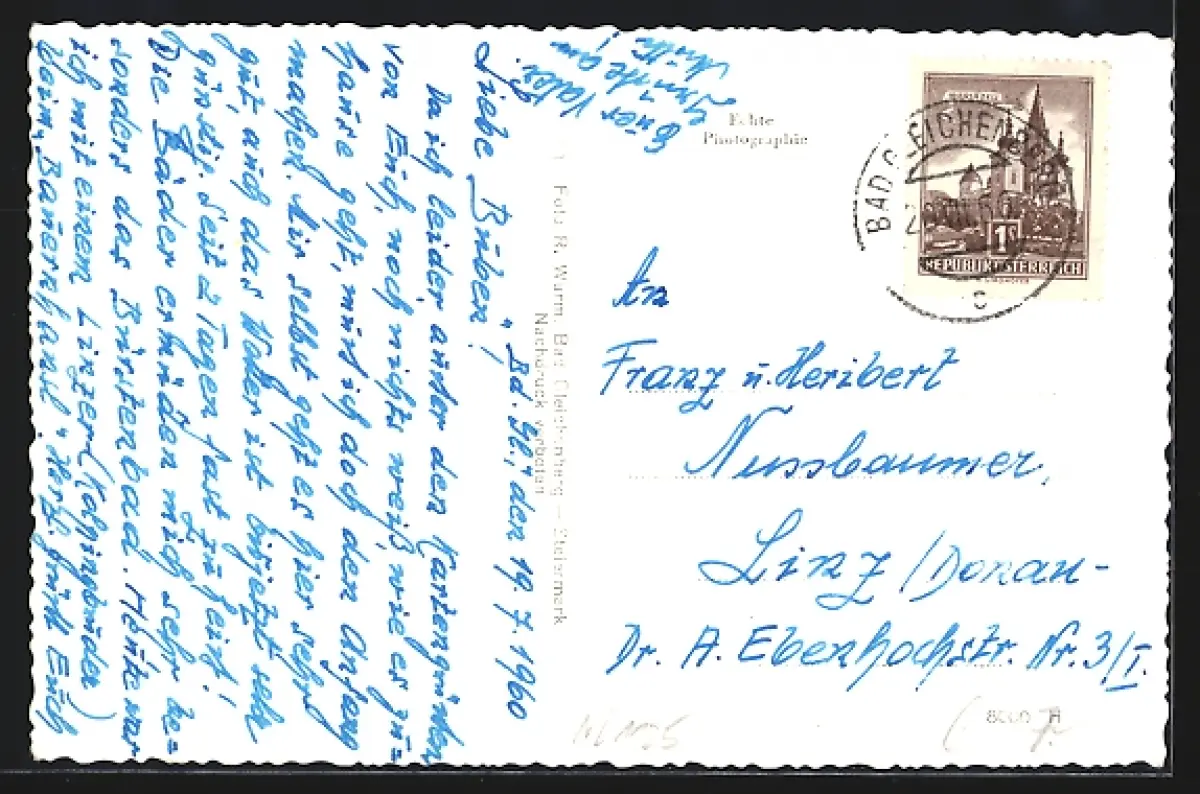 „Bd. Gl.", den 19.7.1960
Liebe Buben!
Da ich leider außer den Kartengrüßen
von Euch, noch nichts weiß, wie es zu=
hause geht, muß ich doch den Anfang
machen. Mir selbst geht es hier sehr
gut, auch das Wetter ist bisjetzt sehr
günstig. Seit 2 Tagen fast zu heiß!
Die Bäder ermüden mich sehr be=
sonders das Bürstenbad. Heute war
ich mit einem Linzer
beim „Bauernhansl". Herzl. grüßt Euch
Euer Vater.
Echte
Photographie
Foto R. Wurm, Bad Gleichenberg – Steiermark
Nachdruck verboten
BAD GLEICHENBERG
c
1 S
REPUBLIK ÖSTERREICH
An
Franz u. Heribert
Nussbaumer,
Linz/Donau-
Dr. A. Eberhochstr. Nr. 3/I.